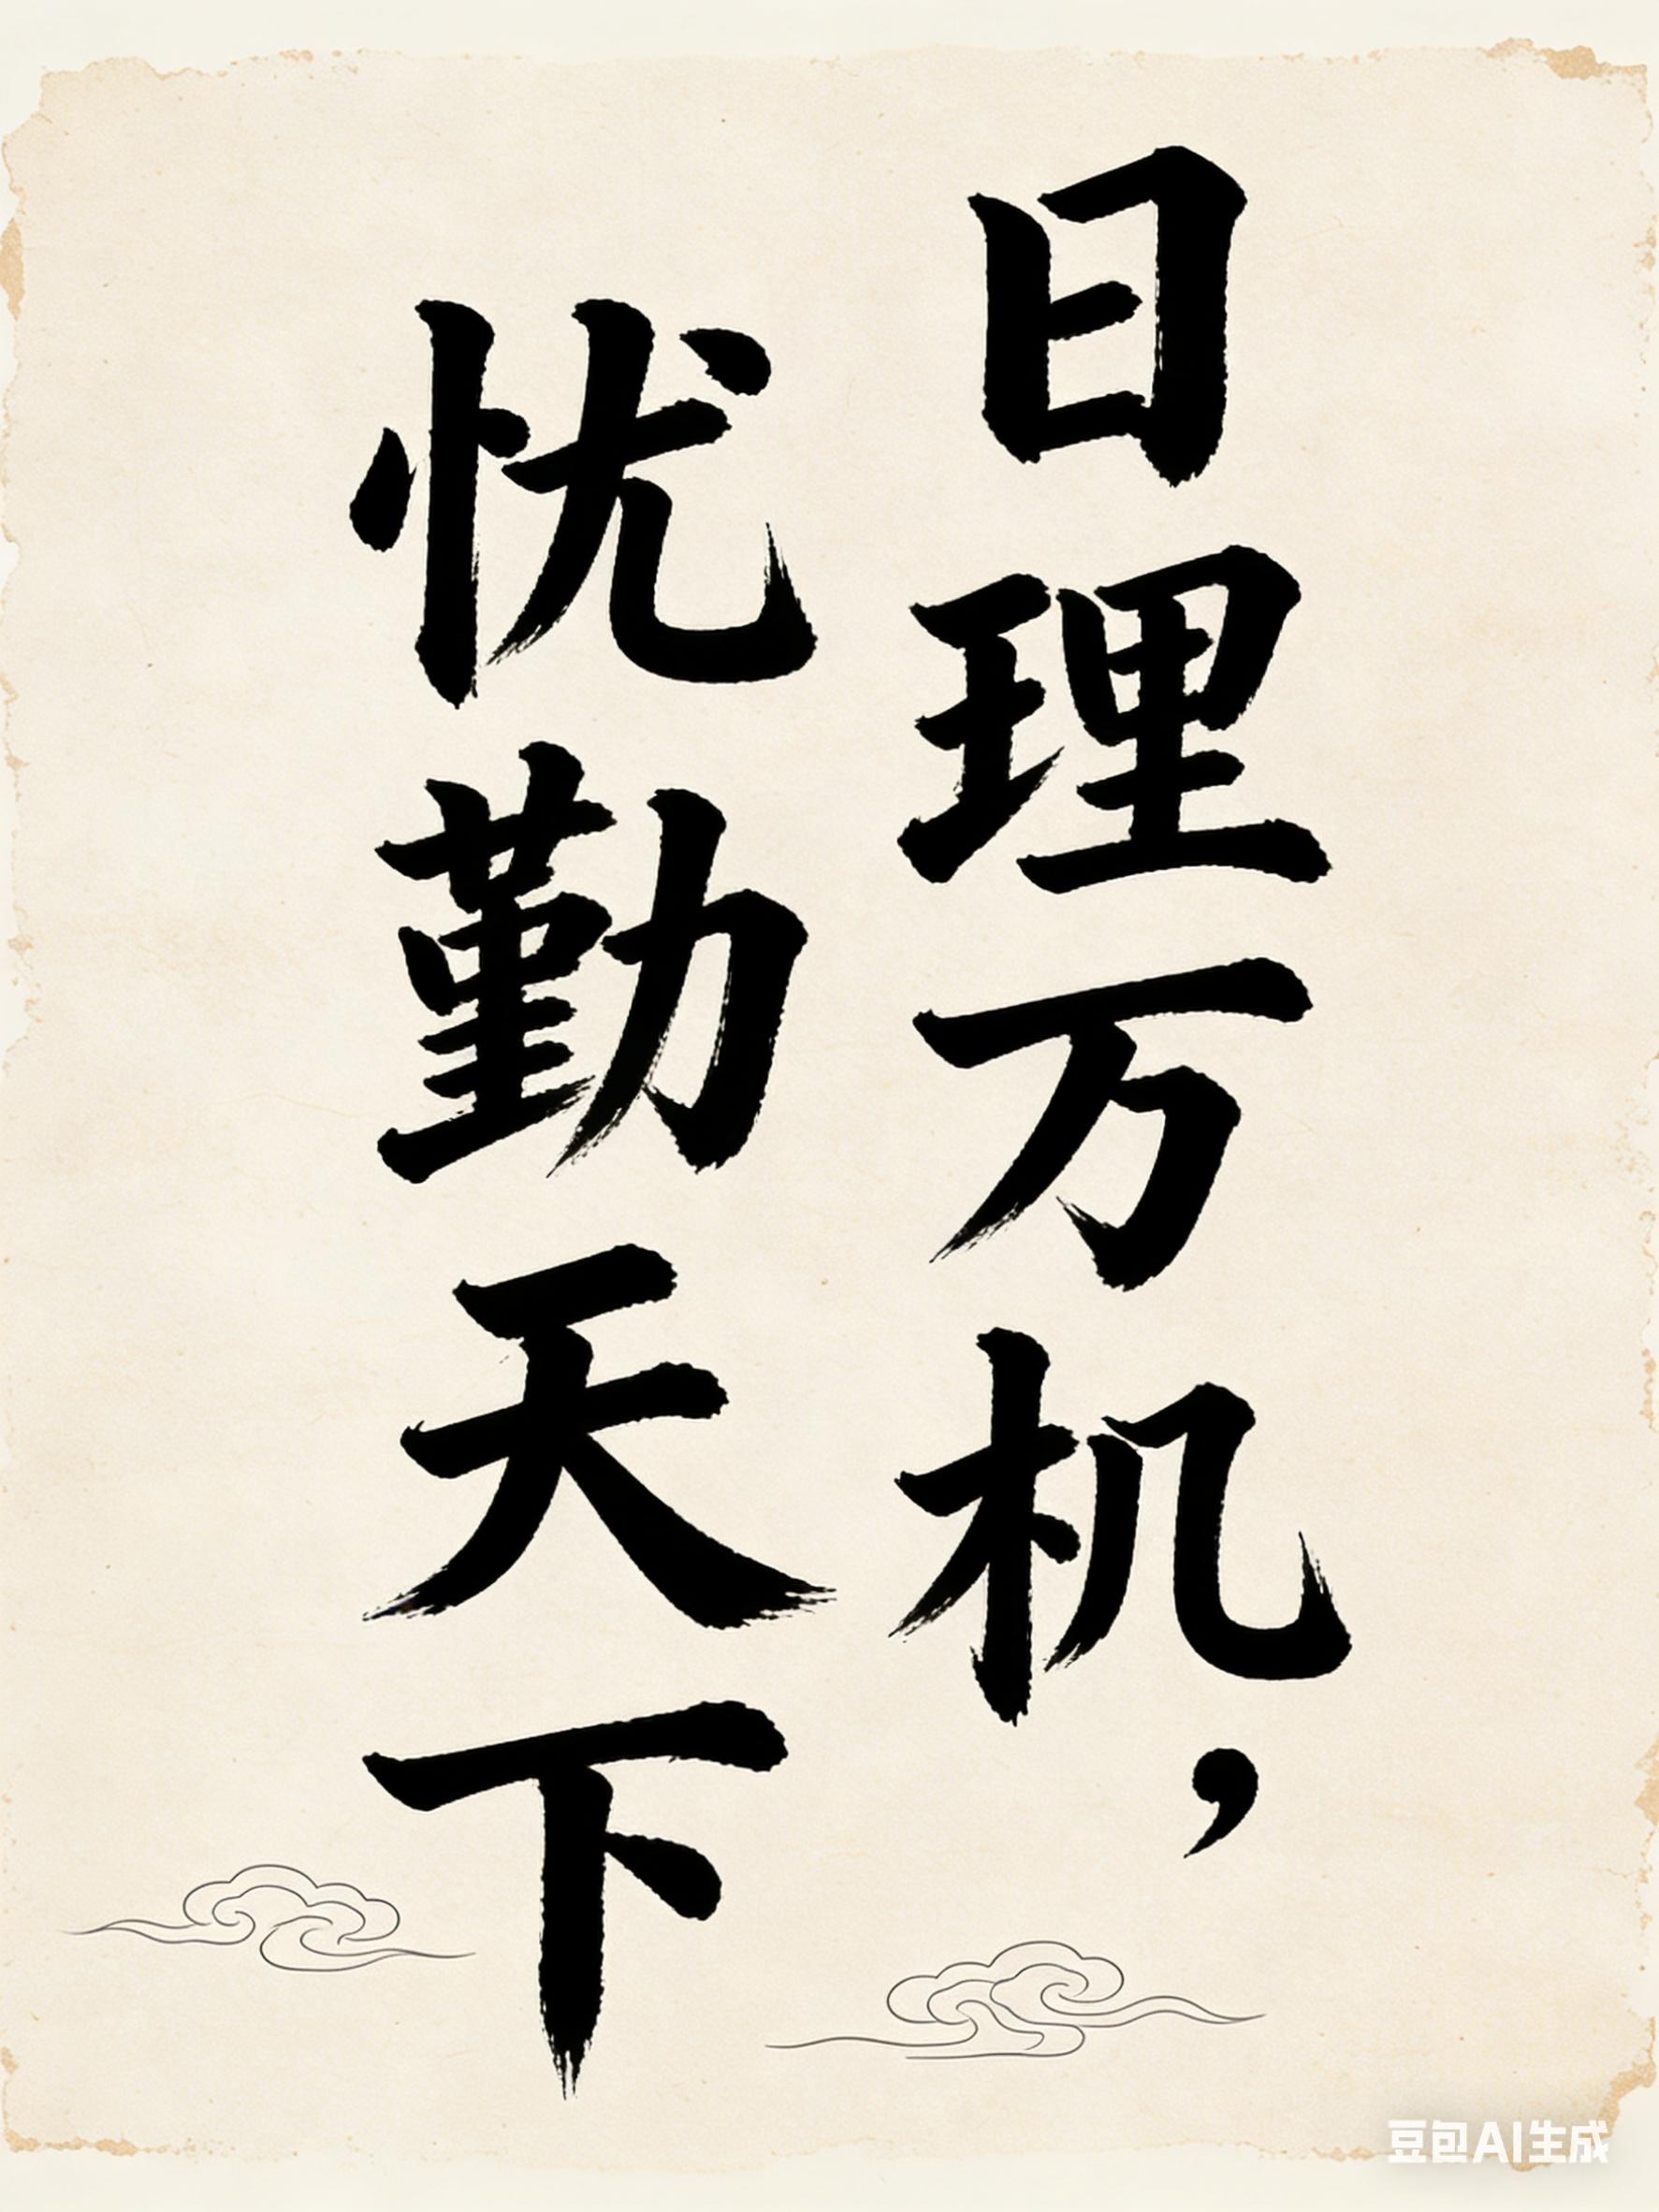 日理万机，
忧勤天下
豆包AI生成